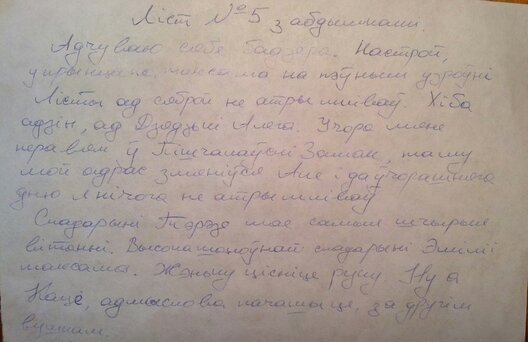 Ліст № 5 з абдымкамі.
Адчуваю сябе бадзёра. Настрой,
у прынцыпе, таксама на пэўным узроўні
Лісты ад сяброў не атрымліваў. Хіба
адзін, ад Дзядзькі Алега. Учора мяне
перавялі ў Пішчалаўскі Замак, таму
мой адрас змяніўся Але і да ўчорашняга
дню я нічога не атрымліваў
Спадарыні Тэрэзе мае самыя шчырыя
вітанні. Высокашаноўнай спадарыні Эміліі
таксама. Жэньку цісніце руку Ну а
Каце, адмыслова пачашыце, за другім
вушкам.